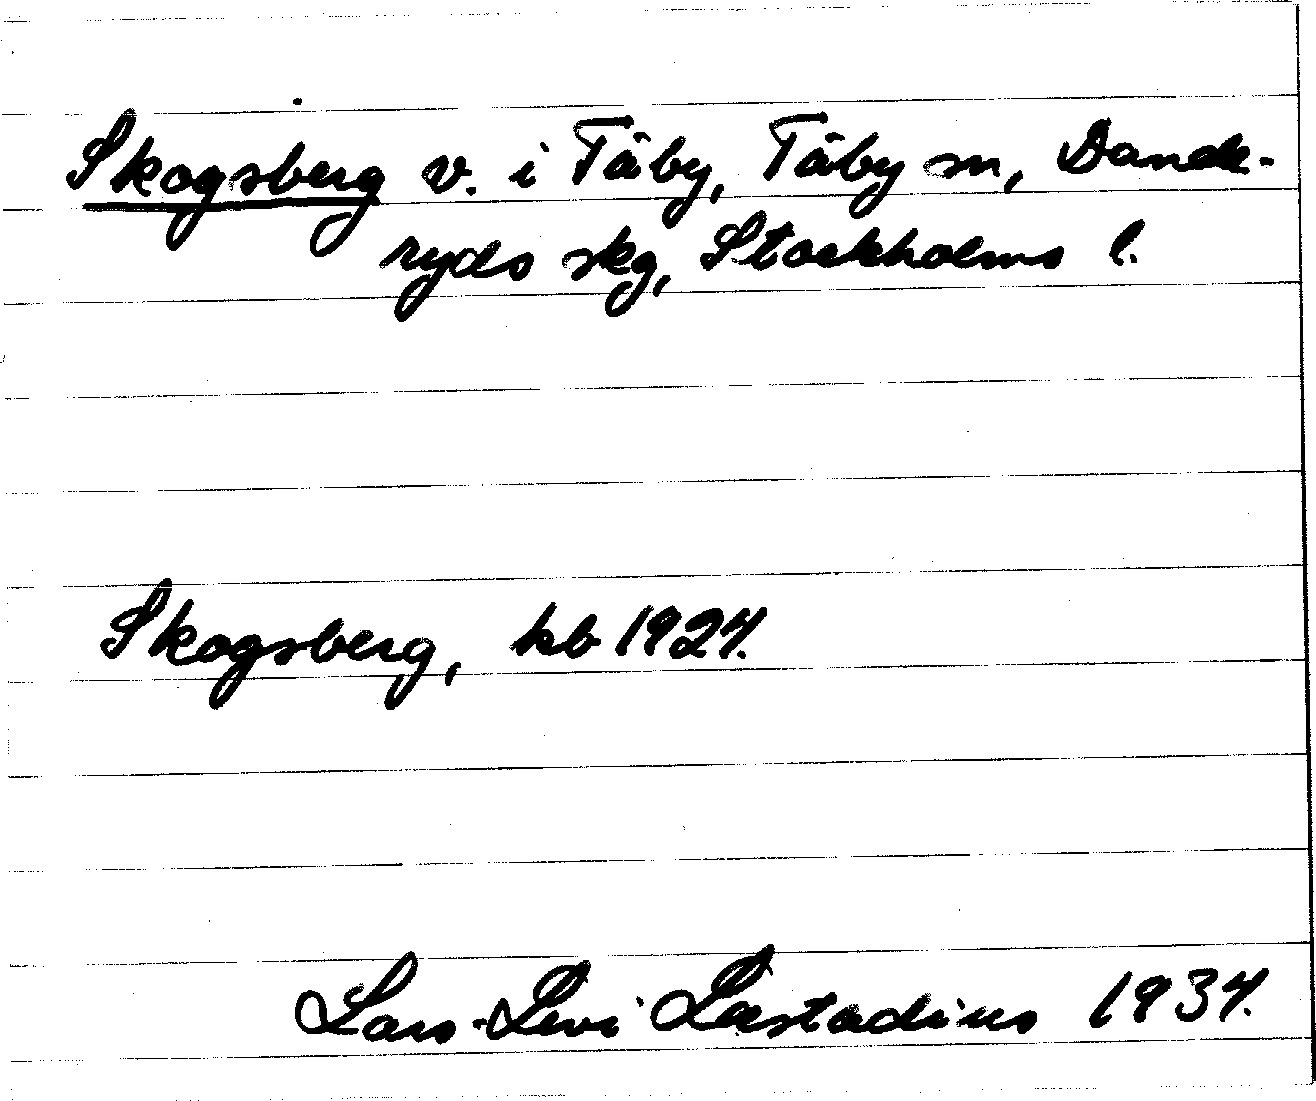 Skogsberg v. i Täby, Täby sn, Dande-
ryds skg, Stockholms l.
Skogsberg, kb 1924.
Lars-Levi Læstadius 1934.